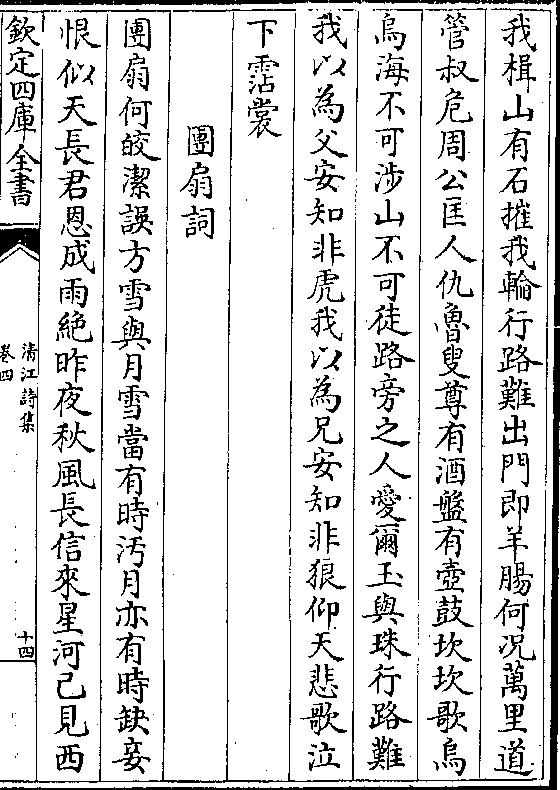 我楫山有石摧我輪行路難出門即羊腸何况萬里道
管叔危周公匡人仇魯叟尊有酒盤有壺鼓坎坎歌烏
烏海不可涉山不可徒路旁之人愛爾玉與珠行路難
我以為父安知非虎我以為兄安知非狼仰天悲歌泣
下霑裳
團扇詞
團扇何皎潔誤方雪與月雪當有時汚月亦有時缺妾
恨似天長君恩成雨絶昨夜秋風長信來星河己見西
欽定四庫全書
清江詩集
卷四
十四